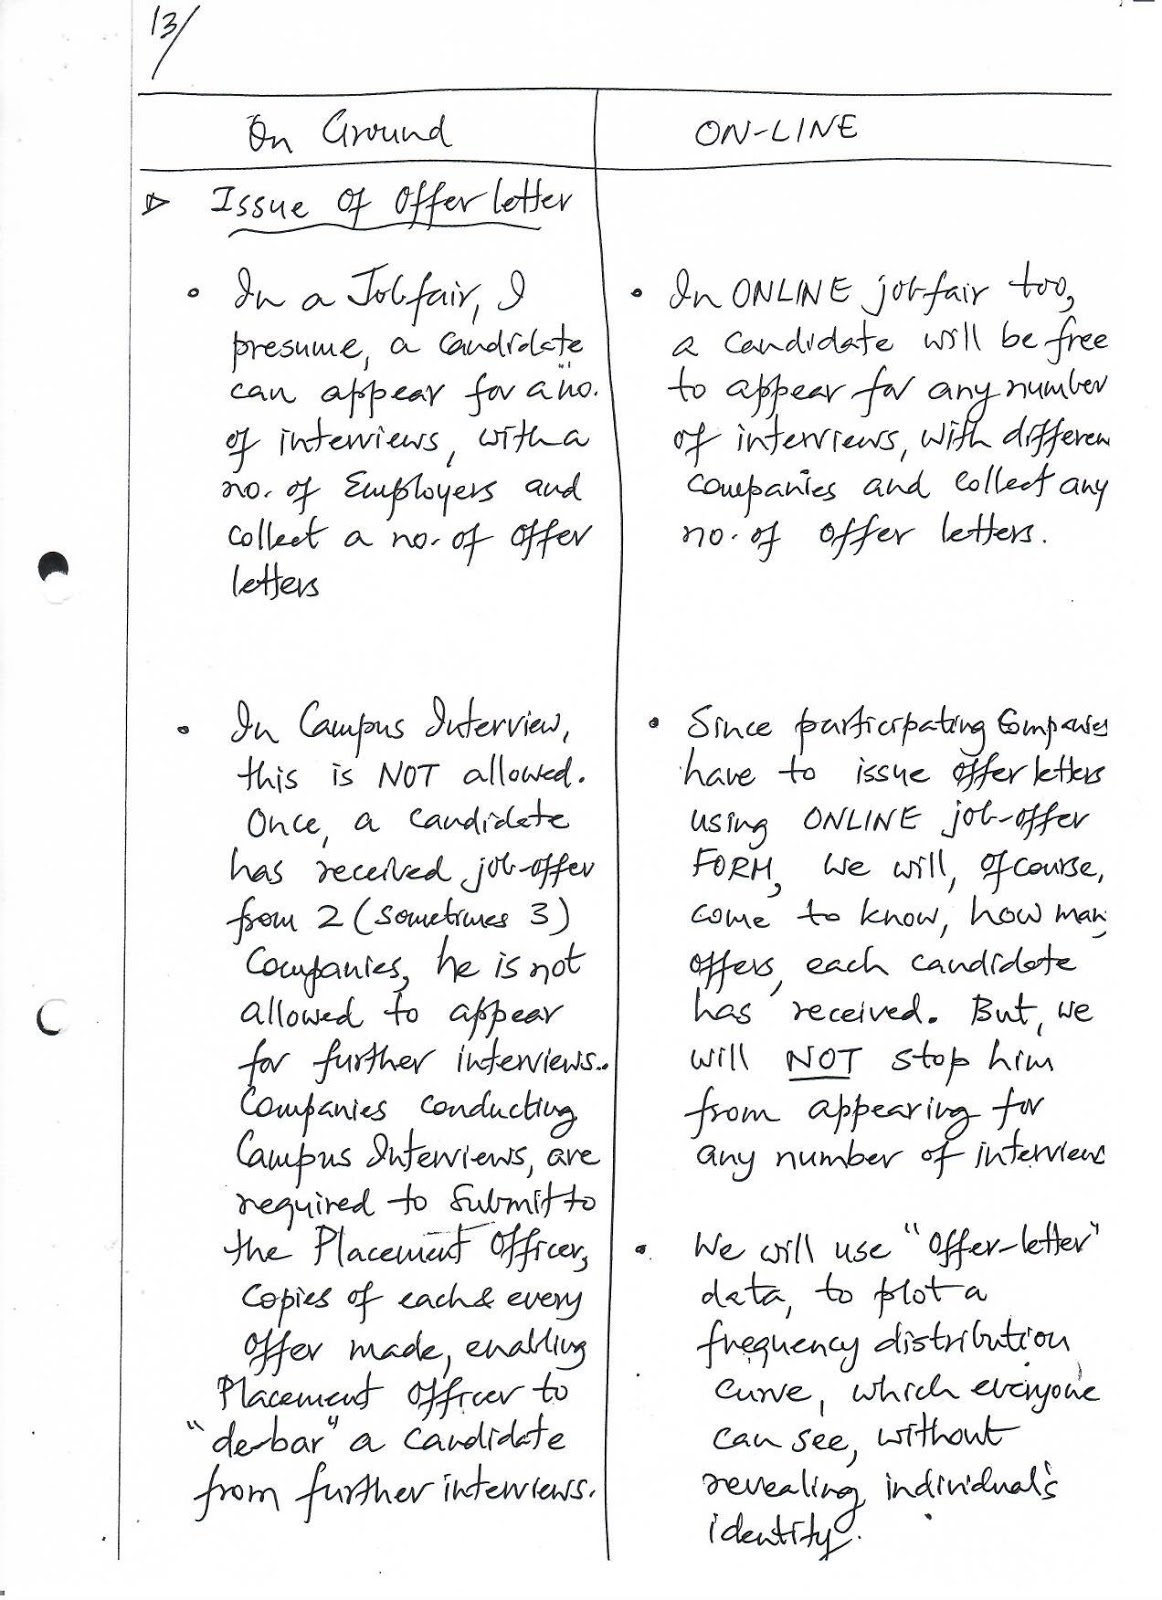 13/
On Ground
ON-LINE
Issue of Offer letter
• In a Jobfair, I
presume, a candidate
can appear for a "no.
of interviews, with a
no. of Employers and
collect a no. of offer
letters
• In Campus Interview,
this is NOT allowed.
Once, a candidate
has received job-offer
from 2 (sometimes 3)
Companies, he is not
allowed to appear
for further interviews..
Companies conducting
Campus Interviews, are
required to submit to
the Placement Officer,
copies of each & every
offer made, enabling
Placement officer to
"de-bar" a candidate
from further interviews.
• In ONLINE jobfair too,
a candidate will be free
to appear for any number
of interviews, with differen
companies and collect any
no. of offer letters.
• Since participating Companies
have to issue offer letters
using ONLINE job-offer
FORM, we will, of course,
come to know, how man
offers, each candidate
has received. But, we
will NOT stop him
from appearing for
any number of interviews
• We will use "offer-letter"
data, to plot a
frequency distribution
curve, which everyone
can see, without
revealing individual's
identity.